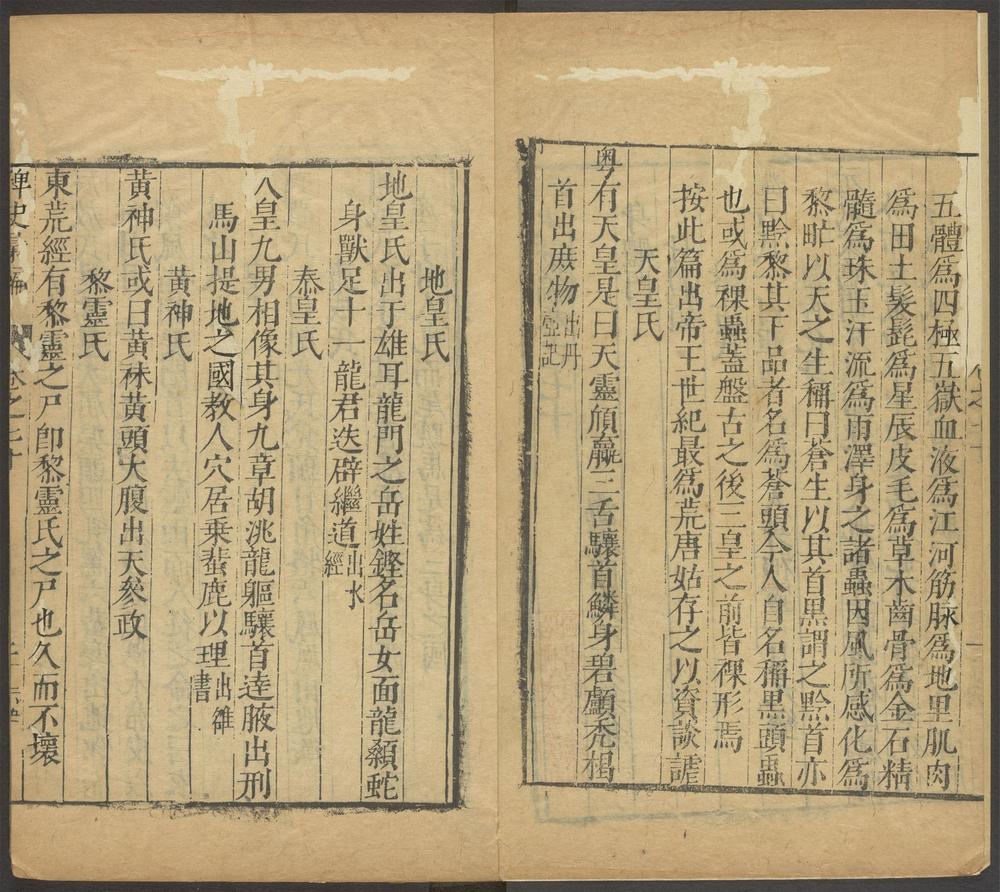 五體爲四極五嶽血液爲江河筋脉爲地里肌肉
爲田土髮髭爲星辰皮毛爲草木齒骨爲金石精
髓爲珠玉汗流爲雨澤身之諸蟲因風所感化爲
黎甿以天之生稱曰蒼生以其首黑謂之黔首亦
曰黔黎其下品者名爲蒼頭今人自名稱黑頭蟲
也或爲裸蟲蓋盤古之後三皇之前皆裸形焉
按此篇出帝王世紀最爲荒唐姑存之以資談謔
天皇氏
粤有天皇是曰天靈頎羸三舌驤首鱗身碧顱禿楬
首出庶物出丹壺記
地皇氏
地皇氏出于雄耳龍門之岳姓鏗名岳女面龍顙蛇
身獸足十一龍君迭辟繼道出水經
泰皇氏
人皇九男相像其身九章胡洮龍軀驤首逹腋出刑
馬山提地之國教人穴居乗蜚鹿以理出雒書
黃神氏
黃神氏或曰黃袜黃頭大腹出天叅政
黎靈氏
東荒經有黎靈之尸卽黎靈氏之尸也久而不壞
稗史彙編
卷之七十